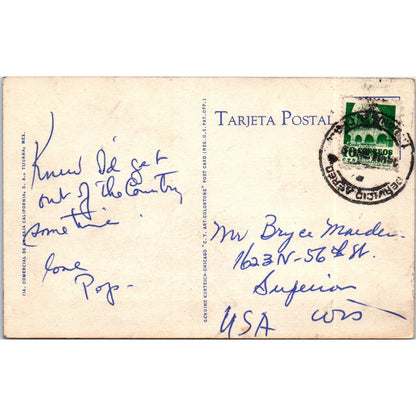 TARJETA POSTAL
Knew I'd get
out of the Country
some time.
love
Pop-
Mr Bryce
1623 N-56th St.
Superior
USA Wis
CIA. COMERCIAL DE LA BAJA CALIFORNIA, S. A., TIJUANA, MEX.
GENUINE CURTEICH-CHICAGO "C. T. ART-COLORTONE" POST CARD (REG. U. S. PAT. OFF.)
CORREOS
SERVICIO AEREO